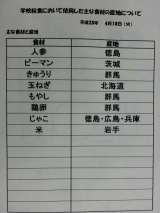 学校給食において使用した主な食材の産地について
平成28年 4月19日(火)
主な食材と産地
食材 産地
人参 徳島
ピーマン 茨城
きゅうり 群馬
玉ねぎ 北海道
もやし 群馬
鶏卵 群馬
じゃこ 徳島・広島・兵庫
米 岩手